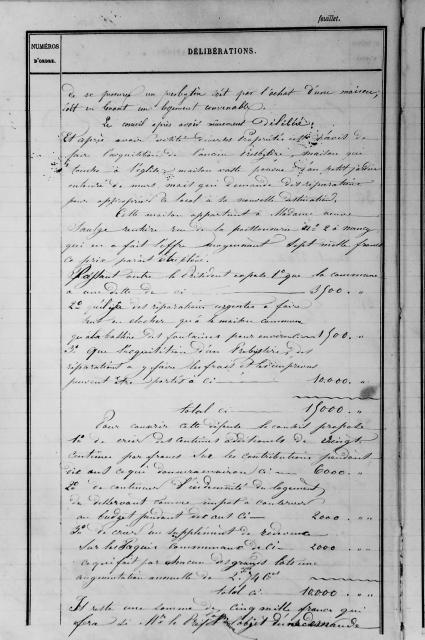 feuillet.
NUMÉROS
D'ORDRE.
DÉLIBÉRATIONS.
de se procurer un presbytère soit par l'achat d'une maison,
soit en louant un logement convenable.
Le conseil après avoir mûrement Délibéré,
Et après avoir visité diverses propriétés est d'avis de
faire l'acquisition de l'ancien presbytère, maison qui
touche à l'église, maison vaste pourvue d'un petit jardin
entouré de murs mais qui demande des réparations
pour approprier le local à sa nouvelle destination.
Cette maison appartient à Madame veuve
rentière rue de la poissonnerie n° 2 à Nancy
qui en a fait l'offre moyennant sept mille francs
ce prix parait
outre le Président expose 1° que la commune
a une dette de ci 3500. "
2° des réparations urgentes à faire
tant au clocher qu'à la maison commune
des fontaines pour environ 1500. "
3° Que l'acquisition d'un Presbytère, des
réparations à y faire les frais et les imprévus
peuvent être portés à ci 10.000. "
total ci 15000. "
Pour couvrir cette dépense le conseil propose
1° de créer des centimes additionnels de vingt
centimes par francs sur les contributions pendant
dix ans ce qui donnera environ ci 6000. "
2° de continuer l'indemnité de logement
du desservant comme
au budget pendant dix ans ci 2000. "
3° de créer un supplément de redevance
sur les communaux de ci 2000. "
ce qui fait par chacun des grands lots une
augmentation annuelle de 2f 74c
total ci 10.000. "
Il reste une somme de cinq mille francs qui
sera si Mr le Préfet l'objet d'une demande